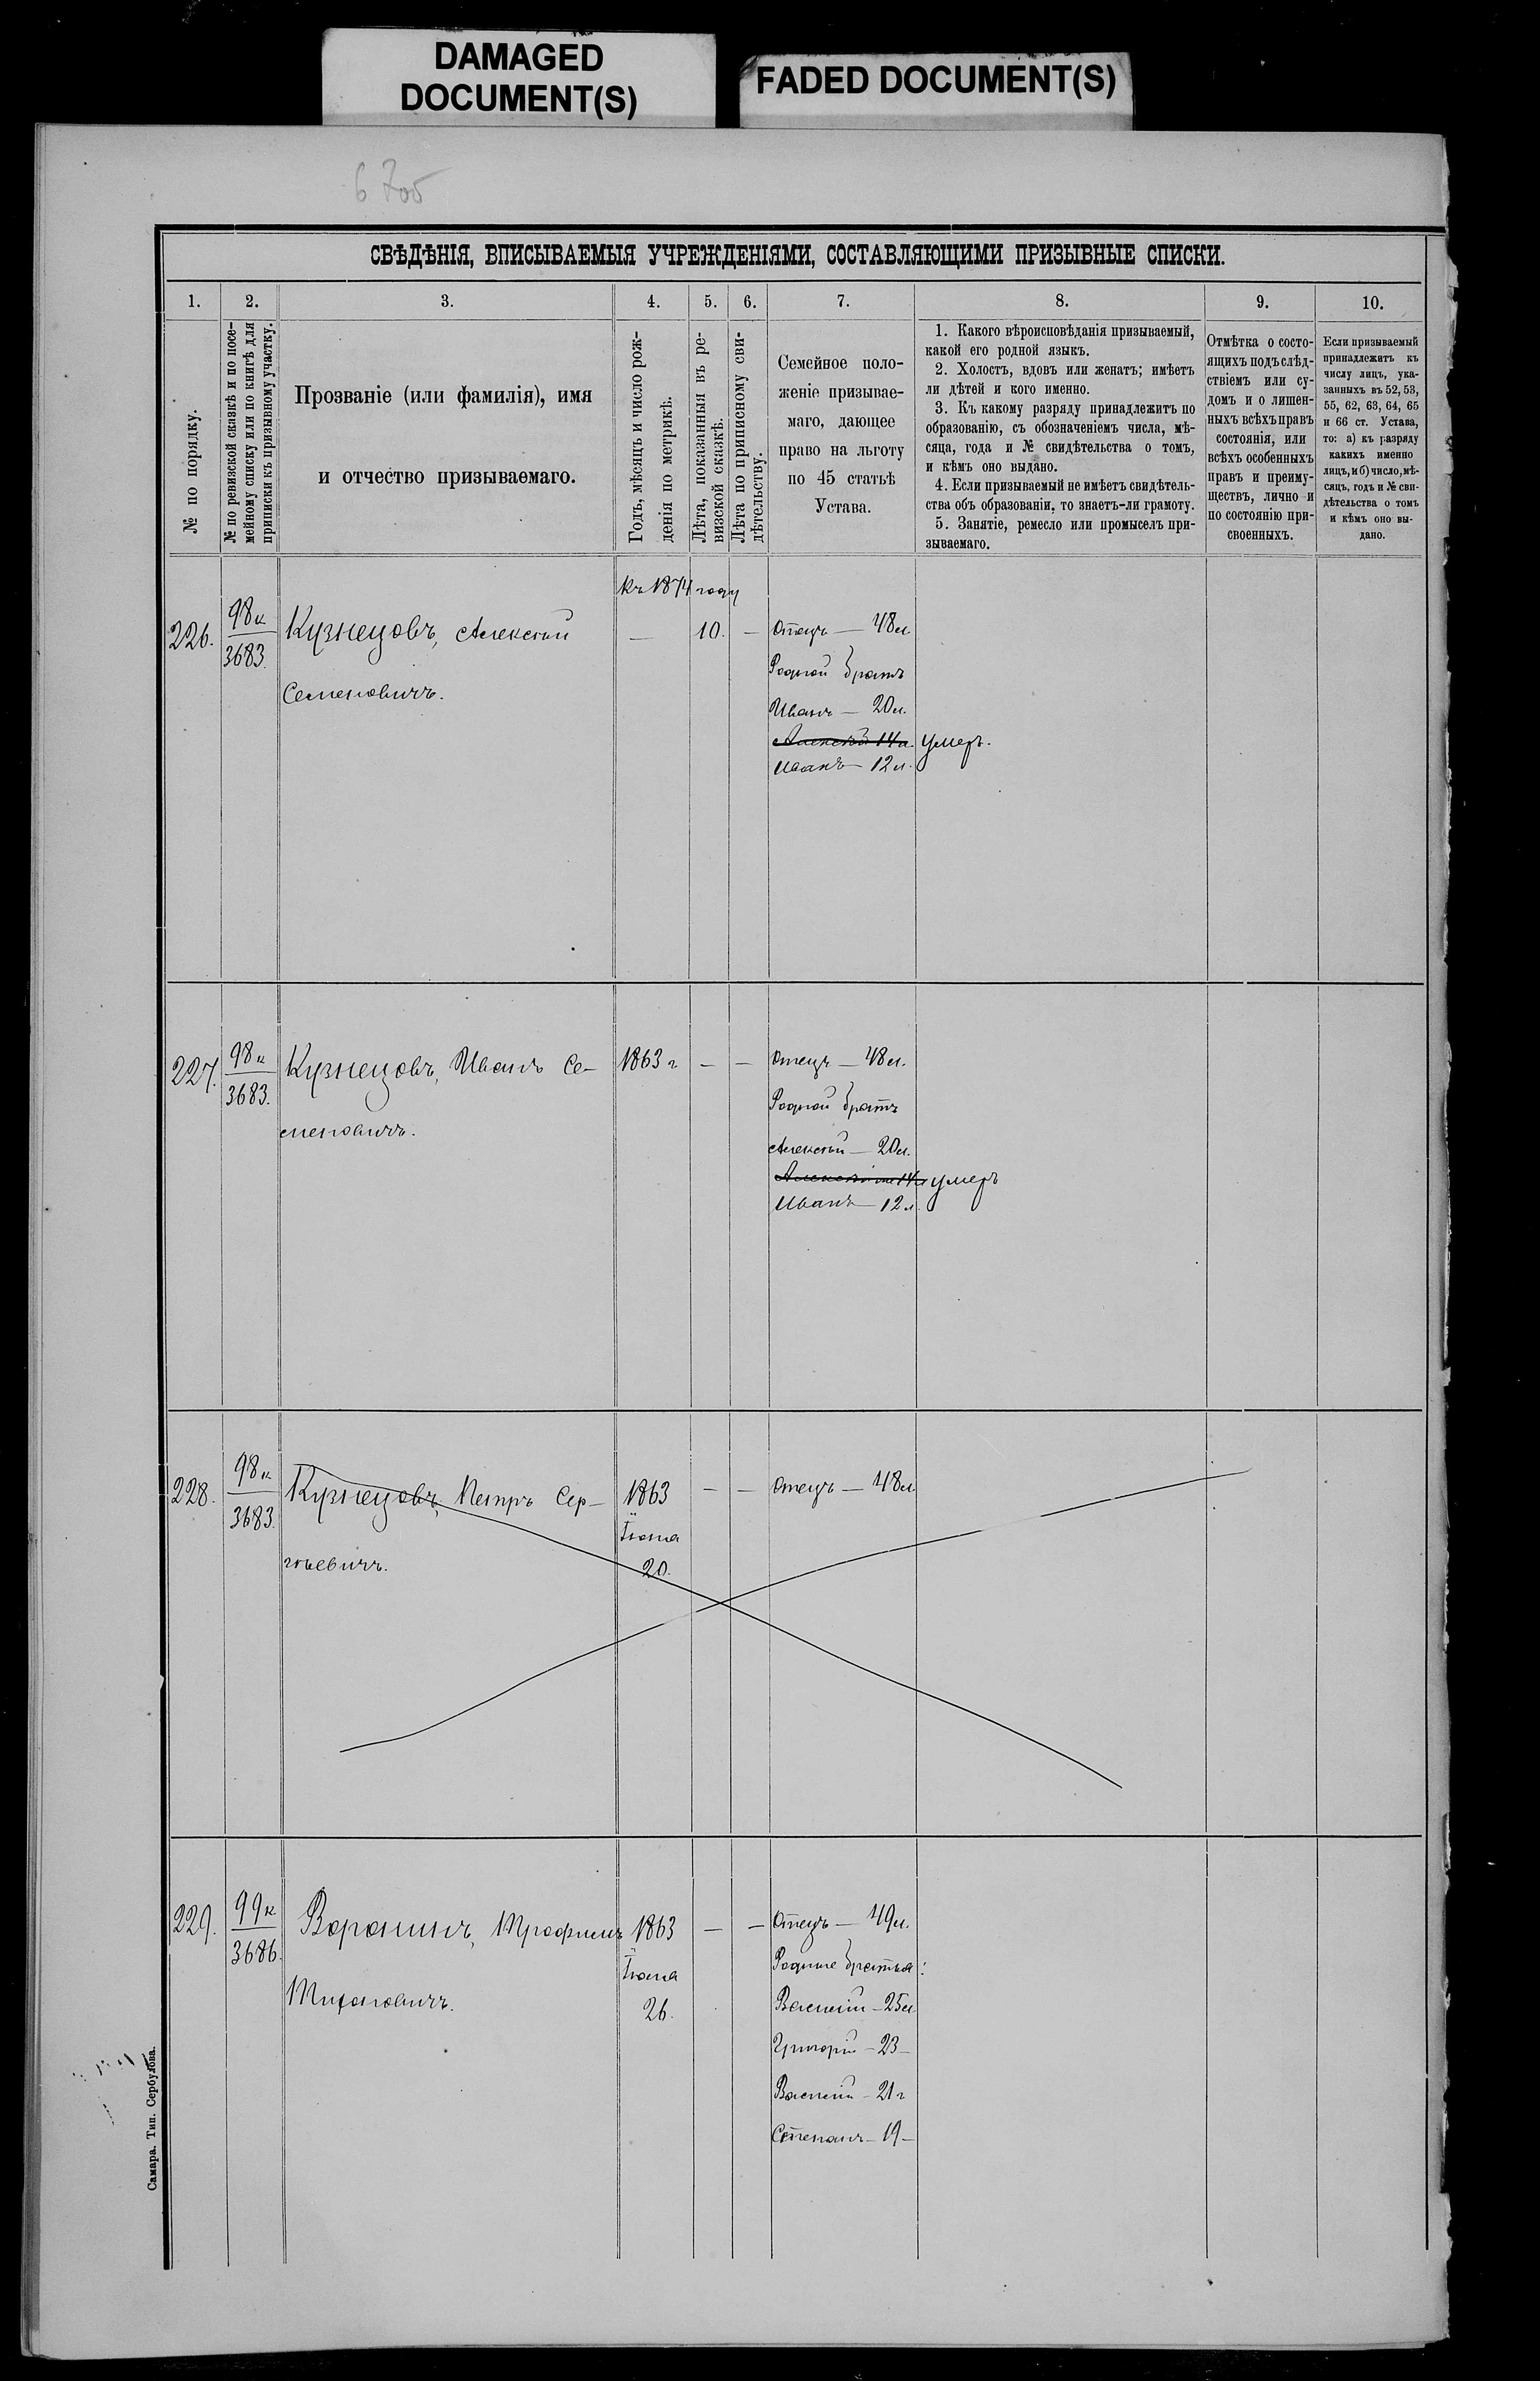 DAMAGED
DOCUMENT(S)
FADED DOCUMENT(S)
СВѢДѢНІЯ, ВПИСЫВАЕМЫЯ УЧРЕЖДЕНІЯМИ, СОСТАВЛЯЮЩИМИ ПРИЗЫВНЫЕ СПИСКИ.
1.
2.
3.
4.
5.
6.
7.
8.
9.
10.
№ по порядку.
№ по ревизской сказкѣ и по посе-
мейному списку или по книгѣ для
приписки къ призывному участку.
Прозваніе (или фамилія), имя
и отчество призываемаго.
Годъ, мѣсяцъ и число рож-
денія по метрикѣ.
Лѣта, показанныя въ ре-
визской сказкѣ.
Лѣта по приписному сви-
дѣтельству.
Семейное поло-
женіе призывае-
маго, дающее
право на льготу
по 45 статьѣ
Устава.
1. Какого вѣроисповѣданія призываемый,
какой его родной языкъ.
2. Холостъ, вдовъ или женатъ; имѣетъ
ли дѣтей и кого именно.
3. Къ какому разряду принадлежитъ по
образованію, съ обозначеніемъ числа, мѣ-
сяца, года и № свидѣтельства о томъ,
и кѣмъ оно выдано.
4. Если призываемый не имѣетъ свидѣтель-
ства объ образованіи, то знаетъ-ли грамоту.
5. Занятіе, ремесло или промыселъ при-
зываемаго.
Отмѣтка о состо-
ящихъ подъ слѣд-
ствіемъ или су-
домъ и о лишен-
ныхъ всѣхъ правъ
состоянія, или
всѣхъ особенныхъ
правъ и преиму-
ществъ, лично и
по состоянію при-
своенныхъ.
Если призываемый
принадлежитъ къ
числу лицъ, ука-
занныхъ въ 52, 53,
55, 62, 63, 64, 65
и 66 ст. Устава,
то: а) къ разряду
какихъ именно
лицъ, и б) число, мѣ-
сяцъ, годъ и № сви-
дѣтельства о томъ
и кѣмъ оно вы-
дано.
къ 1874 году
226.
98к
3683.
Кузнецовъ, Алексѣй
Семеновичъ.
—
10.
—
Отецъ — 48 л.
Родной братъ
Иванъ — 20 л.
Алексѣй 14 л. умеръ.
Иванъ — 12 л.
227.
98к
3683.
Кузнецовъ, Иванъ Се-
меновичъ.
1863 г
—
—
Отецъ — 48 л.
Родной братъ
Алексѣй — 20 л.
умеръ
Иванъ — 12 л.
228.
98к
3683.
Кузнецовъ, Петръ Сер-
гѣевичъ.
1863
Іюня
20.
—
—
Отецъ — 48 л
229.
99к
3686.
Воронинъ, Трофимъ
Тихоновичъ.
1863
Іюня
26.
—
—
Отецъ — 49 л.
Родные братья:
Василій — 25 л
Григорій — 23 —
Василій — 21 г
Степанъ — 19 —
Самара. Тип. Сербулова.